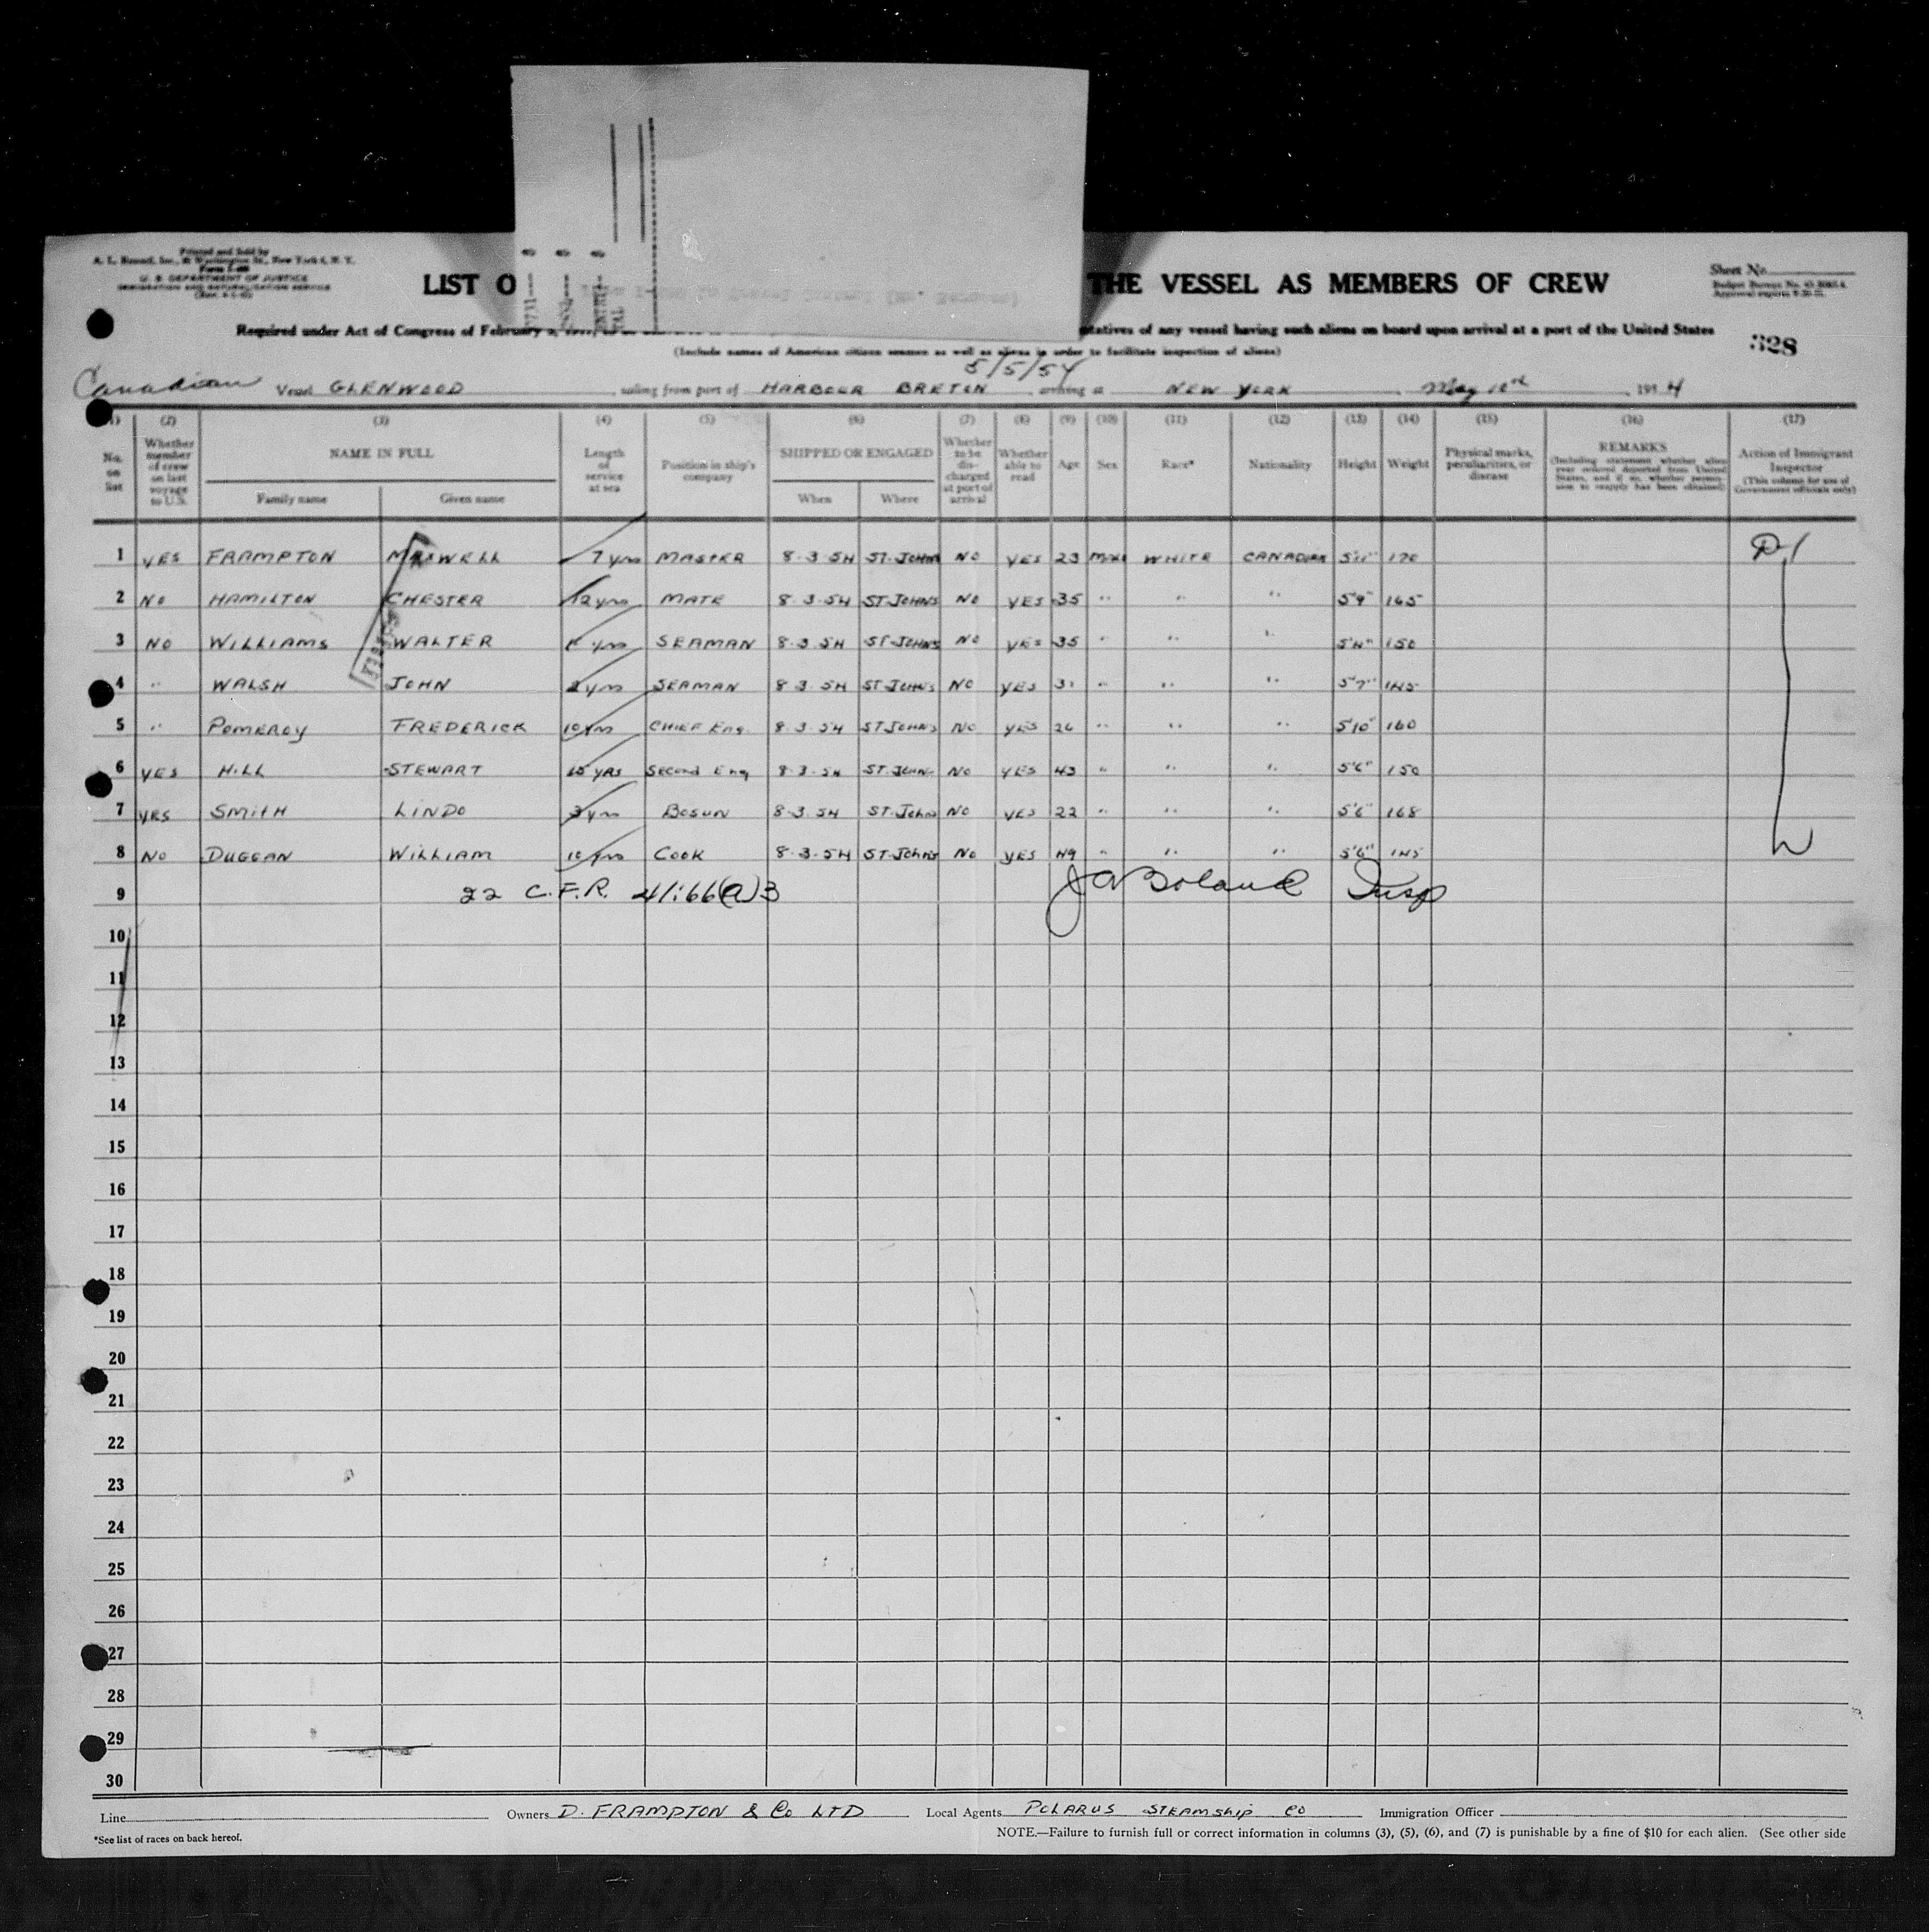 Printed and Sold by
U. S. DEPARTMENT OF JUSTICE
IMMIGRATION AND NATURALIZATION SERVICE
LIST O THE VESSEL AS MEMBERS OF CREW
Sheet No.
Required under Act of Congress of February tatives of any vessel having such aliens on board upon arrival at a port of the United States
(Include names of American citizen seamen as well as aliens in order to facilitate inspection of aliens)
328
5/5/54
Canadian Vessel GLENWOOD sailing from port of HARBOUR BRETON arriving at NEW YORK May 10th 1954
(1) (2) (3) (4) (5) (6) (7) (8) (9) (10) (11) (12) (13) (14) (15) (16) (17)
No. on list Whether member of crew on last voyage to U.S. NAME IN FULL Family name Given name Length of service at sea Position in ship's company SHIPPED OR ENGAGED When Where Whether to be discharged at port of arrival Whether able to read Age Sex Race* Nationality Height Weight Physical marks, peculiarities, or disease REMARKS (Including statement whether alien ever ordered deported from United States, and if so, whether permission to reapply has been obtained) Action of Immigrant Inspector (This column for use of Government officials only)
1 YES FRAMPTON MAXWELL 7 yrs MASTER 8-3-54 ST. JOHNS NO YES 23 MALE WHITE CANADIAN 5'11" 170 D-1
2 NO HAMILTON CHESTER 12 yrs MATE 8-3-54 ST JOHNS NO YES 35 " " " 5'9" 165
3 NO WILLIAMS WALTER yrs SEAMAN 8-3-54 ST JOHNS NO YES 35 " " " 5'4" 150
4 " WALSH JOHN yrs SEAMAN 8-3-54 ST JOHNS NO YES 31 " " " 5'7" 145
5 " POMEROY FREDERICK 10 yrs CHIEF Eng. 8-3-54 ST JOHNS NO YES 26 " " " 5'10" 160
6 YES HILL STEWART 25 YRS Second Eng 8-3-54 ST. JOHNS NO YES 43 " " " 5'6" 150
7 YES SMITH LINDO 3 yrs BOSUN 8-3-54 ST. Johns NO YES 22 " " " 5'6" 168
8 NO DUGGAN WILLIAM 10 yrs COOK 8-3-54 ST. Johns NO YES 49 " " " 5'6" 145
9 22 C.F.R. 41.66(a)3 J A Boland Insp
10
11
12
13
14
15
16
17
18
19
20
21
22
23
24
25
26
27
28
29
30
Line Owners D. FRAMPTON & Co LTD Local Agents POLARUS STEAMSHIP CO Immigration Officer
*See list of races on back hereof. NOTE.—Failure to furnish full or correct information in columns (3), (5), (6), and (7) is punishable by a fine of $10 for each alien. (See other side